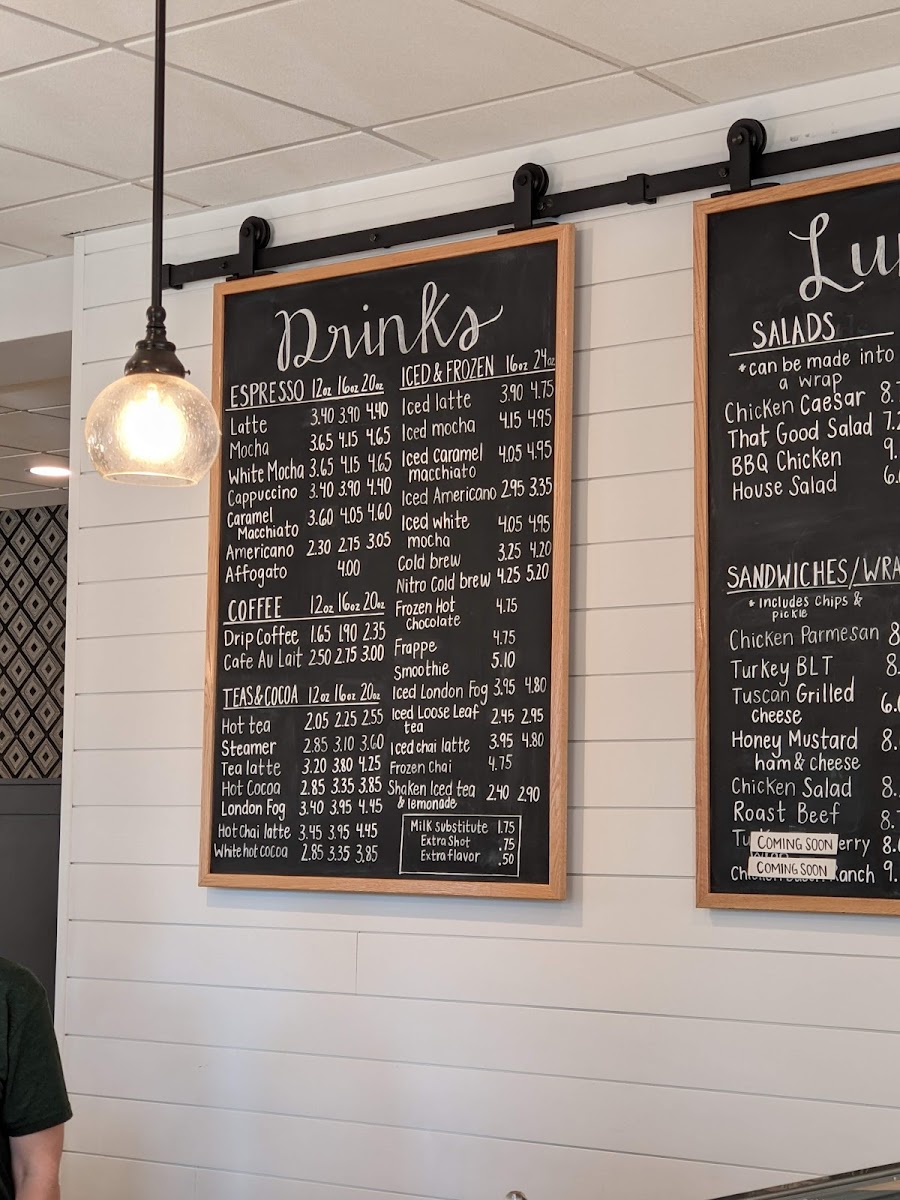 Drinks
ESPRESSO 12oz 16oz 20oz
Latte 3.40 3.90 4.40
Mocha 3.65 4.15 4.65
White Mocha 3.65 4.15 4.65
Cappuccino 3.40 3.90 4.40
Caramel
Macchiato 3.60 4.05 4.60
Americano 2.30 2.75 3.05
Affogato 4.00
COFFEE 12oz 16oz 20oz
Drip Coffee 1.65 1.90 2.35
Cafe Au Lait 2.50 2.75 3.00
TEAS & COCOA 12oz 16oz 20oz
Hot tea 2.05 2.25 2.55
Steamer 2.85 3.10 3.60
Tea latte 3.20 3.80 4.25
Hot Cocoa 2.85 3.35 3.85
London Fog 3.40 3.95 4.45
Hot Chai latte 3.45 3.95 4.45
White hot cocoa 2.85 3.35 3.85
ICED & FROZEN 16oz 24oz
Iced latte 3.90 4.75
Iced mocha 4.15 4.95
Iced Caramel
macchiato 4.05 4.95
Iced Americano 2.95 3.35
Iced white
mocha 4.05 4.95
Cold brew 3.25 4.20
Nitro Cold brew 4.25 5.20
Frozen Hot
Chocolate 4.75
Frappe 4.75
Smoothie 5.10
Iced London Fog 3.95 4.80
Iced Loose Leaf
tea 2.45 2.95
Iced chai latte 3.95 4.80
Frozen Chai 4.75
Shaken Iced tea
& lemonade 2.40 2.90
Milk Substitute 1.75
Extra Shot .75
Extra flavor .50
SALADS
*can be made into
a wrap
Chicken Caesar 8.
That Good Salad 7.
BBQ Chicken 9.
House Salad 6.
SANDWICHES/WRA
* Includes Chips &
pickle
Chicken Parmesan 8
Turkey BLT 8.
Tuscan Grilled
cheese 6.
Honey Mustard
ham & cheese 8.
Chicken Salad 8.
Roast Beef 8.
COMING SOON erry 8.
COMING SOON Ranch 9.